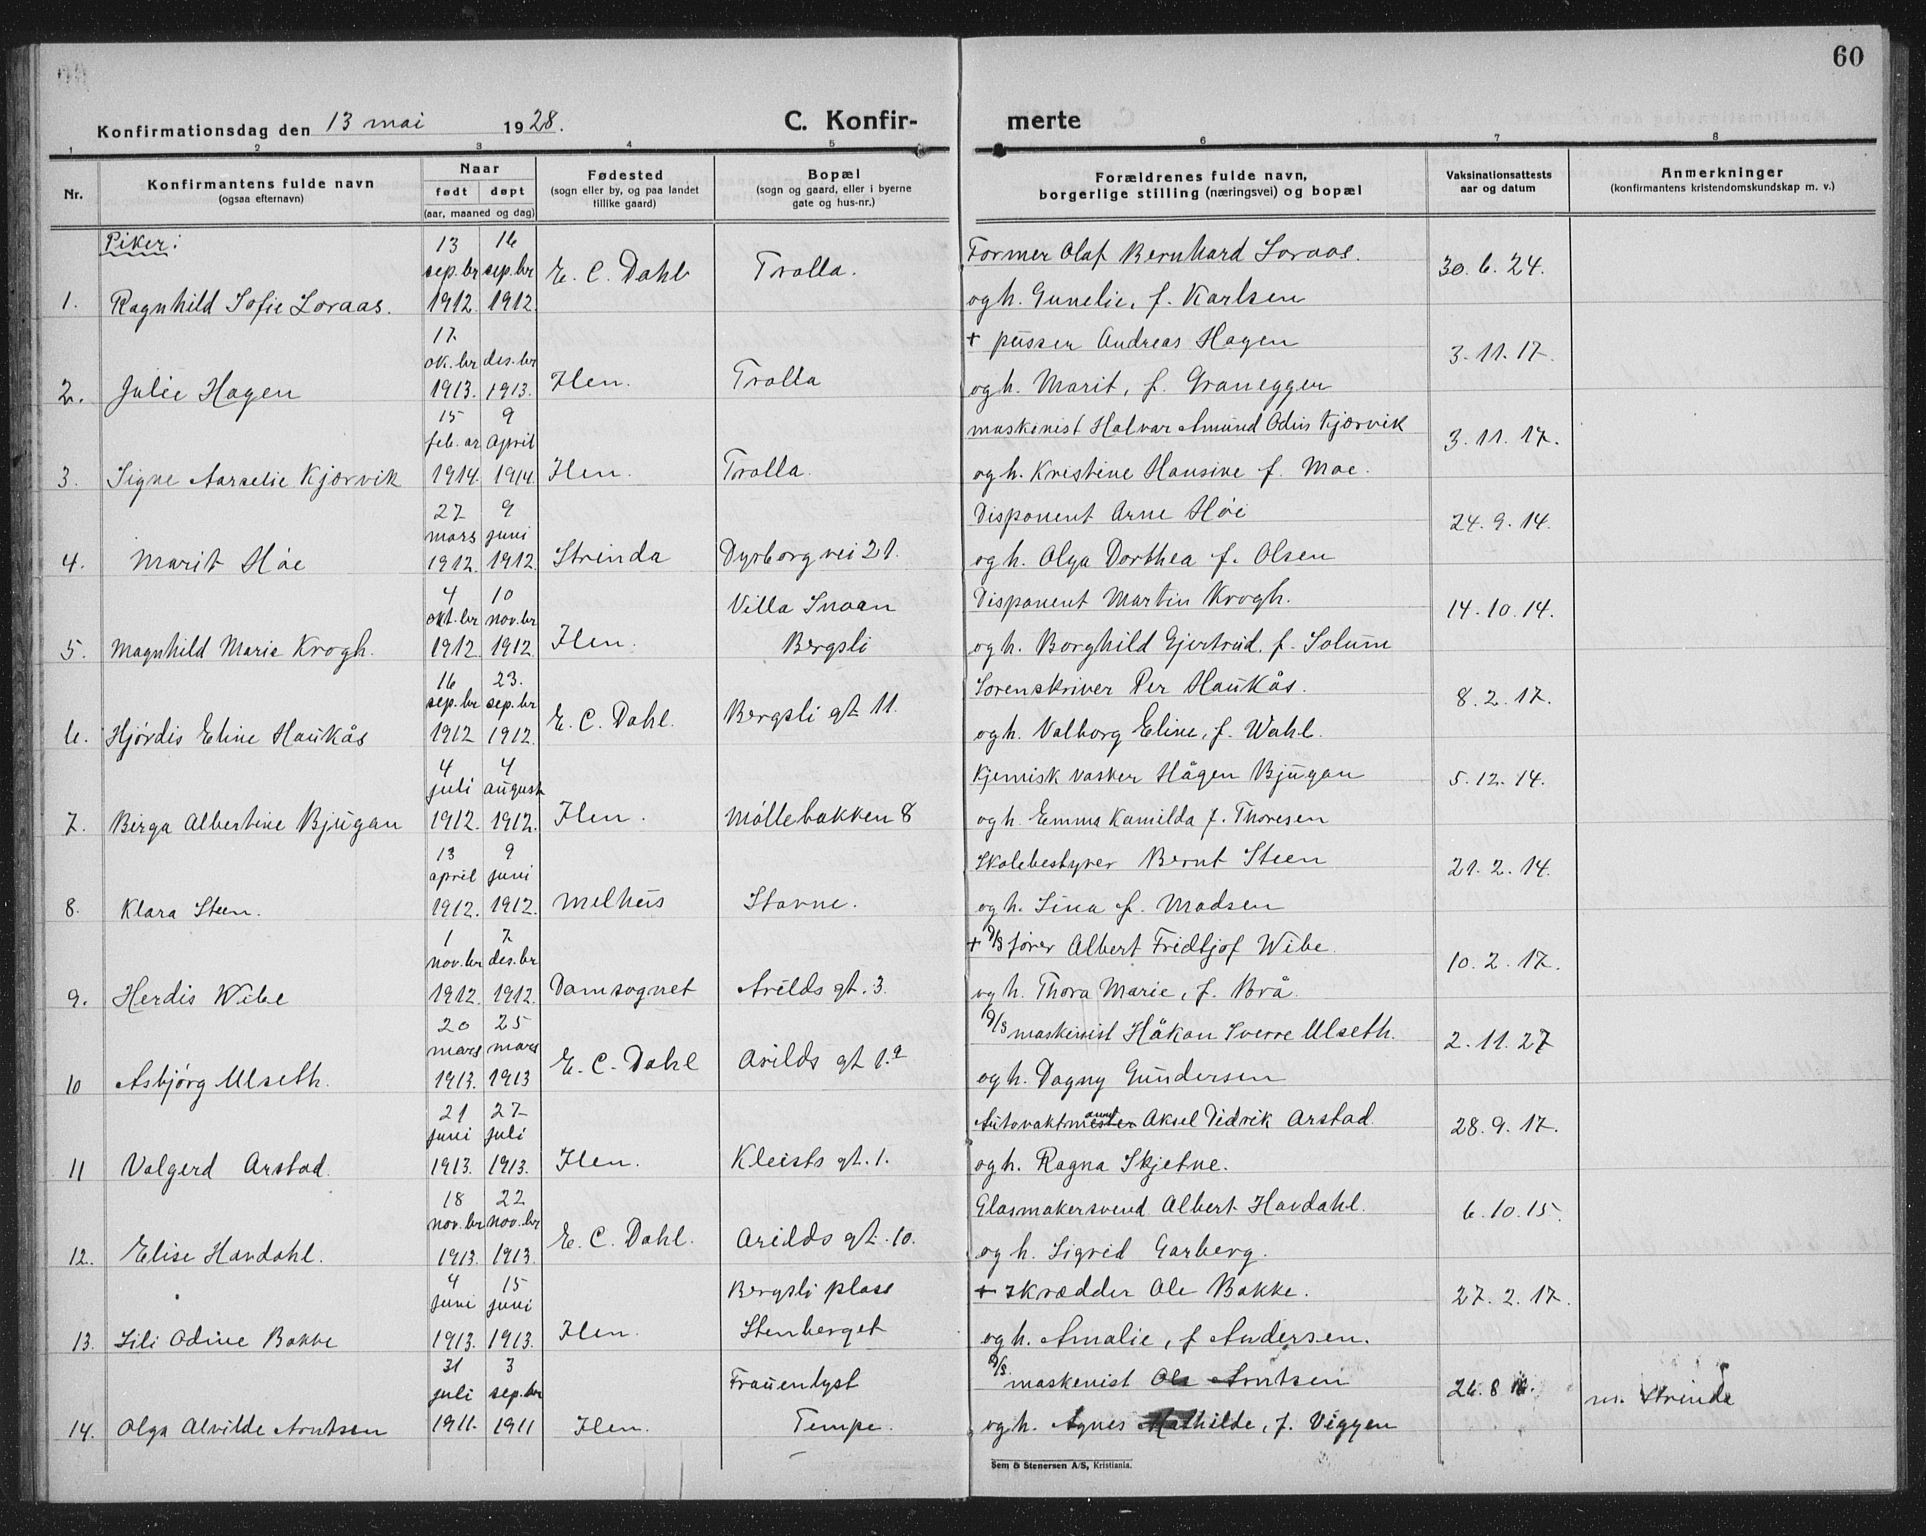 60
Konfirmationsdag den 13 mai 1928. C. Konfirmerte
1 2 3 4 5 6 7 8
Nr. Konfirmantens fulde navn (ogsaa efternavn) Naar født døpt (aar, maaned og dag) Fødested (sogn eller by, og paa landet tillike gaard) Bopæl (sogn og gaard, eller i byerne gate og hus-nr.) Forældrenes fulde navn, borgerlige stilling (næringsvei) og bopæl Vaksinationsattests aar og datum Anmerkninger (konfirmantens kristendomskundskap m. v.)
Piker:
13 16 Former Olaf Bernhard Loraas.
sep.br sep.br E. C. Dahl Trolla. 30. 6. 24.
1. Ragnhild Sofie Loraas. 1912. 1912. og h. Gunelie, f. Karlsen
17. + pusser Andreas Hagen
ok.br des.br 3. 11. 17.
2. Julie Hagen 1913. 1913. Ilen. Trolla og h. Marit, f. Graneggen
15 9 maskinist Halvar Amund Odin Kjørvik
feb.ar april 3. 11. 17.
3. Signe Aarselie Kjørvik 1914. 1914. Ilen. Trolla. og h. Kristine Hansine f. Moe.
27 9 Disponent Arne Høe
mars juni 24. 9. 14.
4. Marit Høe 1912. 1912. Strinda Dyrborg vei 21. og h. Olga Dorthea f. Olsen
4 10 Villa Snoan Disponent Martin Krogh.
okt.br nov.br 14. 10. 14.
5. Magnhild Marie Krogh. 1912. 1912. Ilen. Bergsli og h. Borghild Gjertrud, f. Solum
16 23. Sorenskriver Per Haukås.
sep.br sep.br E. C. Dahl. Bergsli gt 11. 8. 2. 17.
6. Hjørdis Eline Haukås 1912 1912. og h. Valborg Eline, f. Wahl.
4 4 Kjemisk vasker Hågen Bjugan
juli august 5. 12. 14.
7. Birga Albertine Bjugan 1912. 1912. Ilen. Møllebakken 8 og h. Emma Kamilda f. Thoresen
13 9 Skolebestyrer Bernt Steen
april juni 21. 2. 14.
8. Klara Steen. 1912. 1912. Melhus Stavne. og h. Sina f. Madsen
1 7 + D/S fører Albert Fridtjof Wibe.
nov.br des.br 10. 2. 17.
9. Herdis Wibe 1912. 1912. Domsognet Arilds gt. 3. og h. Thora Marie, f. Brå.
20 25 D/S maskinist Håkon Sverre Ulseth.
mars mars E. C. Dahl Arilds gt 1.a 2. 11. 27
10 Asbjørg Ulseth. 1913. 1913 og h. Dagny Gundersen
21 27 Autovaktmester Aksel Didrik Arstad.
juni juli 28. 9. 17.
11 Valgerd Arstad. 1913. 1913. Ilen. Kleists gt. 1. og h. Ragna Skjetne.
18 22 Glasmakersvend Albert Havdahl.
nov.br nov.br 6. 10. 15.
12. Elise Havdahl. 1913. 1913. E. C. Dahl. Arilds gt. 10. og h. Sigrid Garberg.
4 15 Bergsli plass + skrædder Ole Bakke.
juni juni 27. 2. 17.
13. Lili Odine Bakke 1913. 1913. Ilen. Stenberget og h. Amalie, f Andersen.
31 3 Frauenlyst D/S. maskinist Ole Arntsen
juli sep.br 26. 8 m. Strinda
14. Olga Alvilde Arntsen 1911. 1911 Ilen. Tempe. og h. Agnes Mathilde, f. Viggen
Sem & Stenersen A/S, Kristiania.